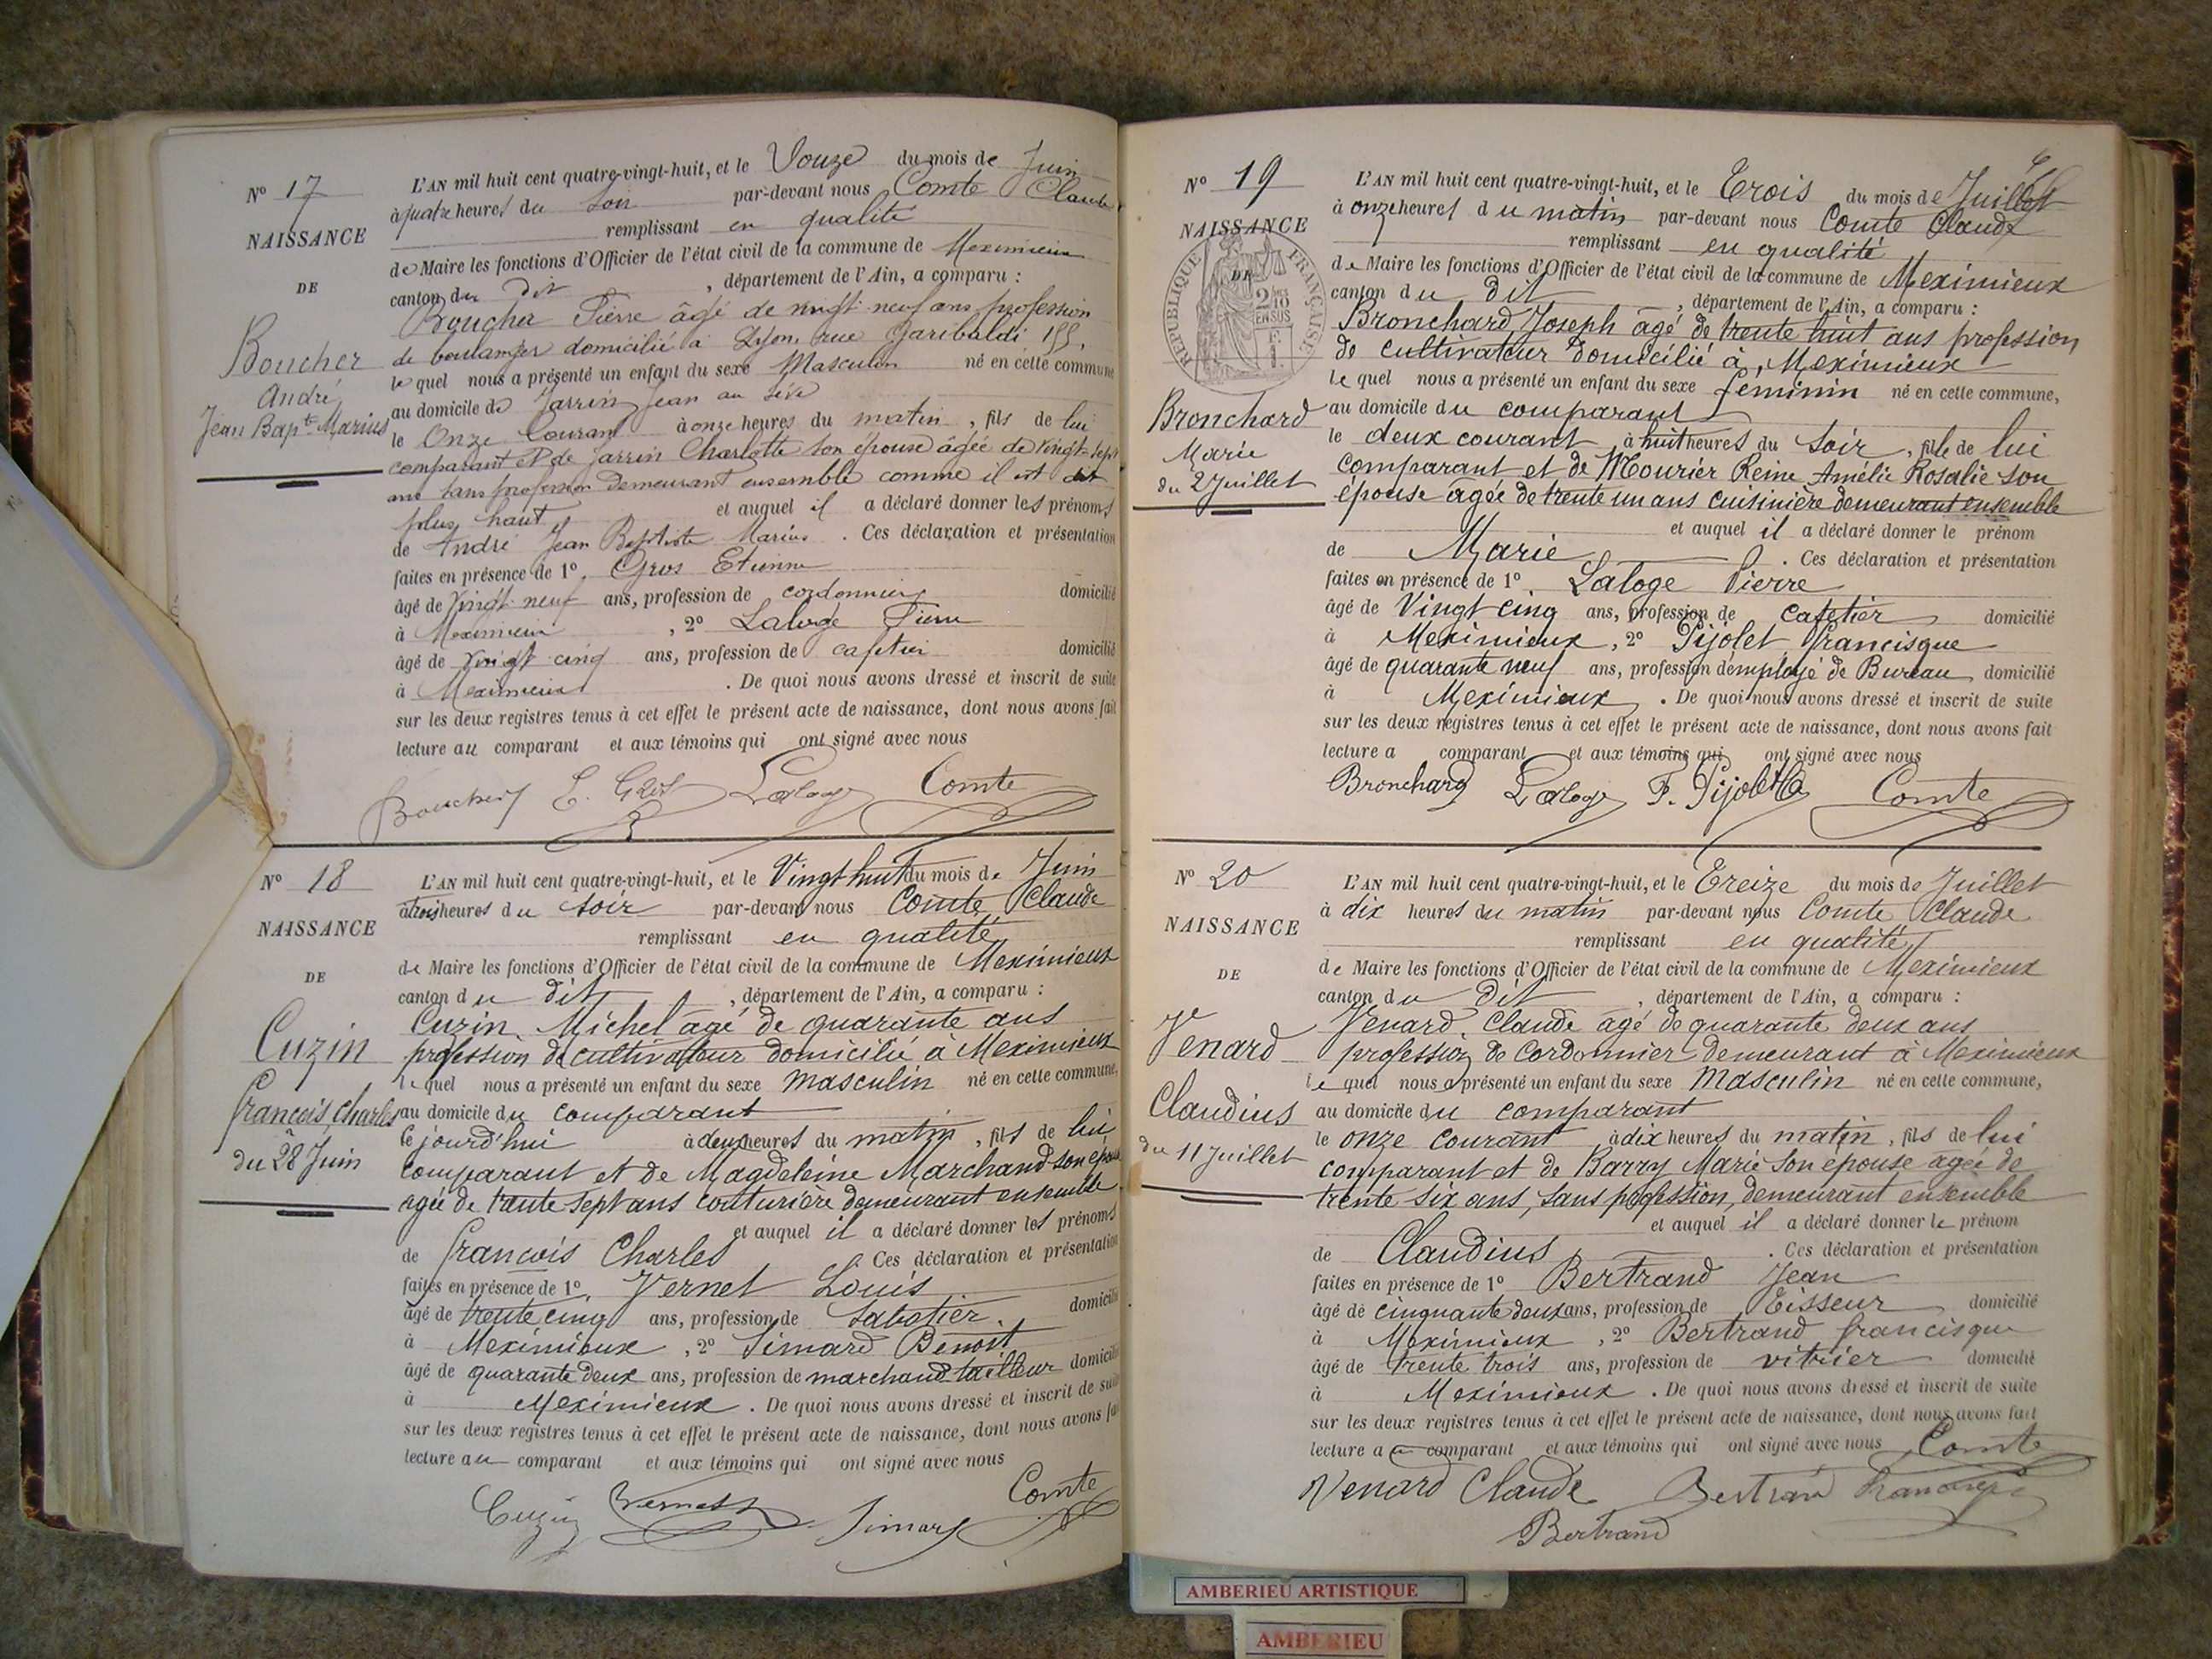 N° 17
NAISSANCE
DE
Boucher
André
Jean Bapte Marius
L'AN mil huit cent quatre-vingt-huit, et le Douze du mois de Juin
à quatre heures du soir par-devant nous Comte Claude
remplissant en qualité
de Maire les fonctions d'Officier de l'état civil de la commune de Meximieux
canton du dit, département de l'Ain, a comparu :
Boucher Pierre âgé de vingt-neuf ans profession
de boulanger domicilié à Lyon, rue Garibaldi 155,
le quel nous a présenté un enfant du sexe Masculin né en cette commune
au domicile de Jarrin Jean au
le Onze Courant à onze heures du matin, fils de lui
comparant et de Jarrin Charlotte son épouse âgée de vingt-sept
ans sans profession demeurant ensemble comme il est dit
plus haut et auquel il a déclaré donner les prénoms
de André Jean Baptiste Marius. Ces déclaration et présentation
faites en présence de 1° Gros Etienne
âgé de vingt neuf ans, profession de cordonnier domicilié
à Meximieux, 2° Laloge Pierre
âgé de vingt cinq ans, profession de cafetier domicilié
à Meximieux. De quoi nous avons dressé et inscrit de suite
sur les deux registres tenus à cet effet le présent acte de naissance, dont nous avons fait
lecture au comparant et aux témoins qui ont signé avec nous
Boucher E. Gros Laloge Comte
N° 18
NAISSANCE
DE
Cuzin
François Charles
du 28 Juin
L'AN mil huit cent quatre-vingt-huit, et le Vingt huit du mois de Juin
à trois heures du soir par-devant nous Comte Claude
remplissant en qualité
de Maire les fonctions d'Officier de l'état civil de la commune de Meximieux
canton du dit, département de l'Ain, a comparu :
Cuzin Michel âgé de quarante ans
profession de cultivateur domicilié à Meximieux
le quel nous a présenté un enfant du sexe masculin né en cette commune,
au domicile du comparant
le jourd'hui à deux heures du matin, fils de lui
comparant et de Magdeleine Marchand son épouse
agée de trente sept ans couturière demeurant ensemble
et auquel il a déclaré donner les prénoms
de François Charles Ces déclaration et présentation
faites en présence de 1° Vernet Louis
âgé de trente cinq ans, profession de Sabotier. domicilié
à Meximieux, 2° Simard Benoit
âgé de quarante deux ans, profession de marchand tailleur domicilié
à Meximieux. De quoi nous avons dressé et inscrit de suite
sur les deux registres tenus à cet effet le présent acte de naissance, dont nous avons fait
lecture au comparant et aux témoins qui ont signé avec nous
Cuzin Vernet Simard Comte
N° 19
NAISSANCE
DE
RÉPUBLIQUE FRANÇAISE
2/10 EN SUS
Bronchard
Marie
du 2 Juillet
L'AN mil huit cent quatre-vingt-huit, et le Trois du mois de Juillet
à onze heures du matin par-devant nous Comte Claude
remplissant en qualité
de Maire les fonctions d'Officier de l'état civil de la commune de Meximieux
canton du dit, département de l'Ain, a comparu :
Bronchard Joseph âgé de trente huit ans profession
de cultivateur domicilié à Meximieux
le quel nous a présenté un enfant du sexe féminin né en cette commune,
au domicile du comparant
le deux courant à huit heures du soir, fille de lui
comparant et de Mourier Reine Amélie Rosalie son
épouse âgée de trente un ans cuisinière demeurant ensemble
et auquel il a déclaré donner le prénom
de Marie. Ces déclaration et présentation
faites en présence de 1° Laloge Pierre
âgé de Vingt cinq ans, profession de cafetier domicilié
à Meximieux, 2° Pijolet francisque
âgé de quarante neuf ans, profession d'employé de Bureau domicilié
à Meximieux. De quoi nous avons dressé et inscrit de suite
sur les deux registres tenus à cet effet le présent acte de naissance, dont nous avons fait
lecture a comparant et aux témoins qui ont signé avec nous
Bronchard Laloge F. Pijolet Comte
N° 20
NAISSANCE
DE
Venard
Claudius
du 11 Juillet
L'AN mil huit cent quatre-vingt-huit, et le Treize du mois de Juillet
à dix heures du matin par-devant nous Comte Claude
remplissant en qualité
de Maire les fonctions d'Officier de l'état civil de la commune de Meximieux
canton du dit, département de l'Ain, a comparu :
Venard Claude âgé de quarante deux ans
profession de Cordonnier demeurant à Meximieux
le quel nous a présenté un enfant du sexe Masculin né en cette commune,
au domicile du comparant
le onze courant à dix heures du matin, fils de lui
comparant et de Barry Marie son épouse agée de
trente six ans, sans profession, demeurant ensemble
et auquel il a déclaré donner le prénom
de Claudius. Ces déclaration et présentation
faites en présence de 1° Bertrand Jean
âgé de cinquante deux ans, profession de Tisseur domicilié
à Meximieux, 2° Bertrand francisque
âgé de trente trois ans, profession de vitrier domicilié
à Meximieux. De quoi nous avons dressé et inscrit de suite
sur les deux registres tenus à cet effet le présent acte de naissance, dont nous avons fait
lecture au comparant et aux témoins qui ont signé avec nous Comte
Venard Claude Bertrand francisque
Bertrand
AMBERIEU ARTISTIQUE
AMBERIEU